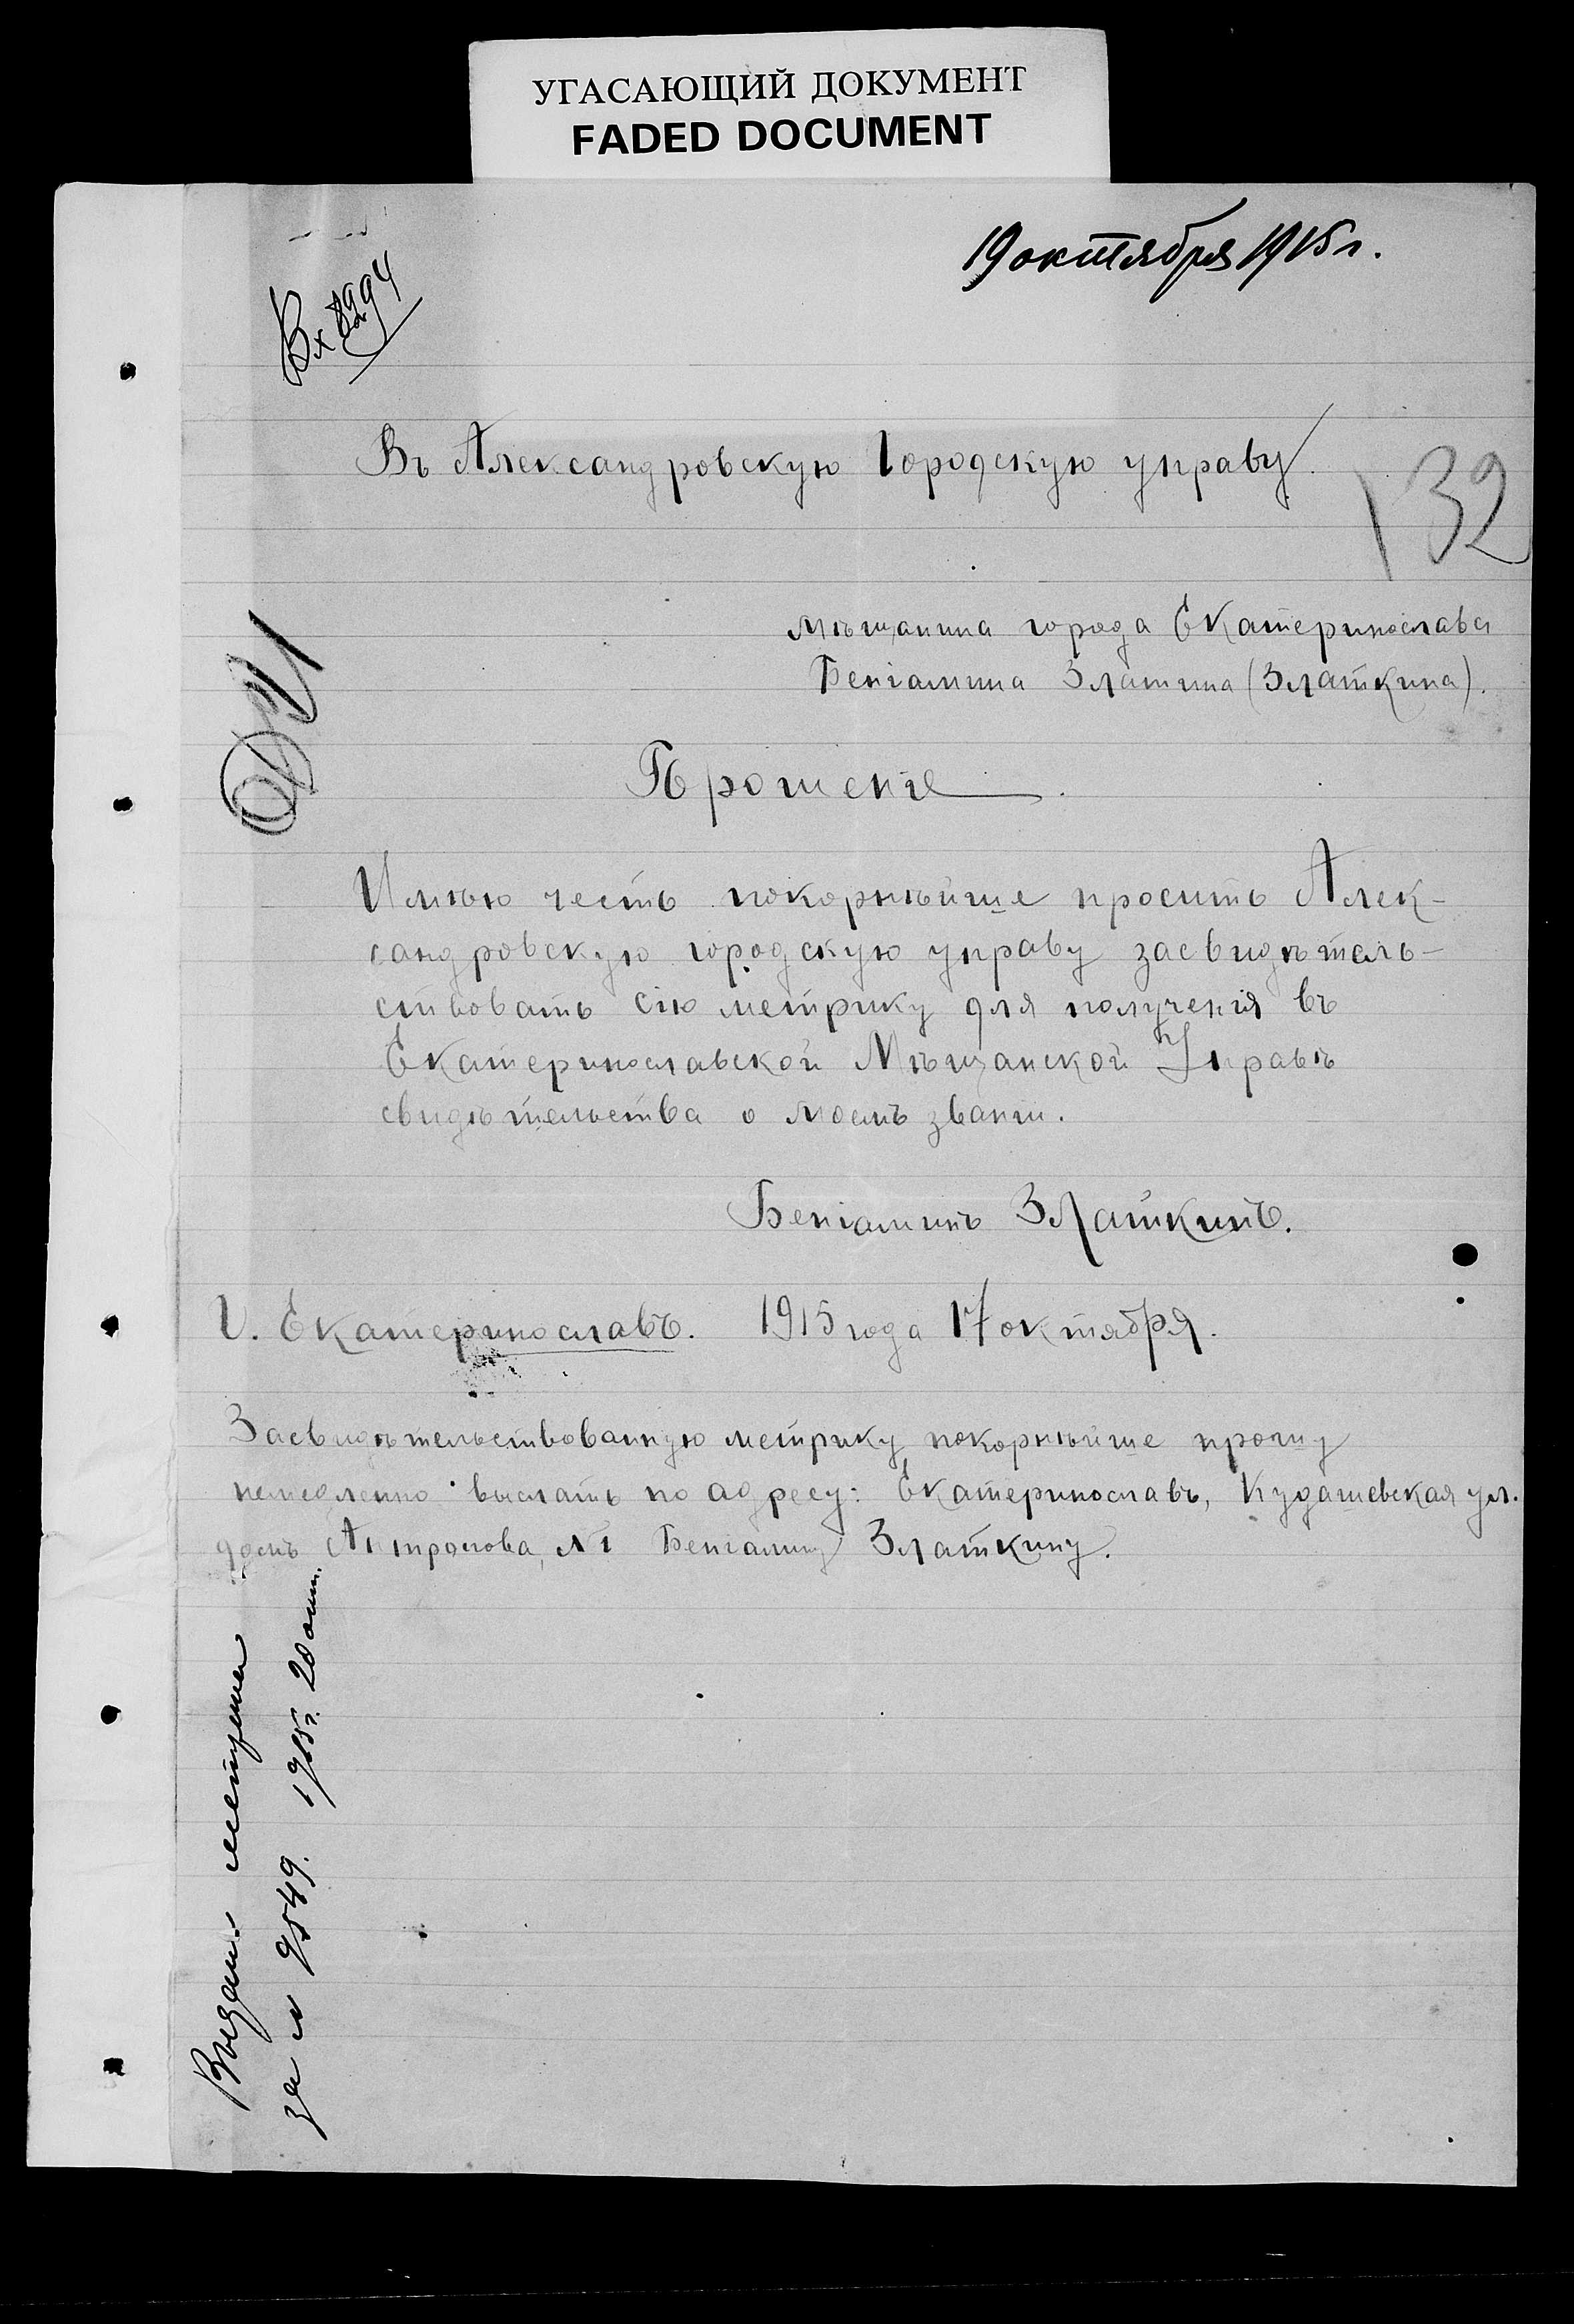 УГАСАЮЩИЙ ДОКУМЕНТ
FADED DOCUMENT
19 октября 1915 г.
Вх 8294
Въ Александровскую Городскую управу.
132
Мѣщанина города Екатеринослава
Беніамина Златина (Златкина).
Прошеніе.
Имѣю честь покорнѣйше просить Алек-
сандровскую городскую управу засвидѣтель-
ствовать сію метрику для полученія въ
Екатеринославской Мѣщанской Управѣ
свидѣтельства о моемъ званіи.
Беніаминъ Златкинъ.
Г. Екатеринославъ. 1915 года 17 октября.
Засвидѣтельствованную метрику покорнѣйше прошу
немедленно выслать по адресу: Екатеринославъ, Кудашевская ул.
домъ №1 Беніамину Златкину.
за № 9549. 1915 г. 20 окт.